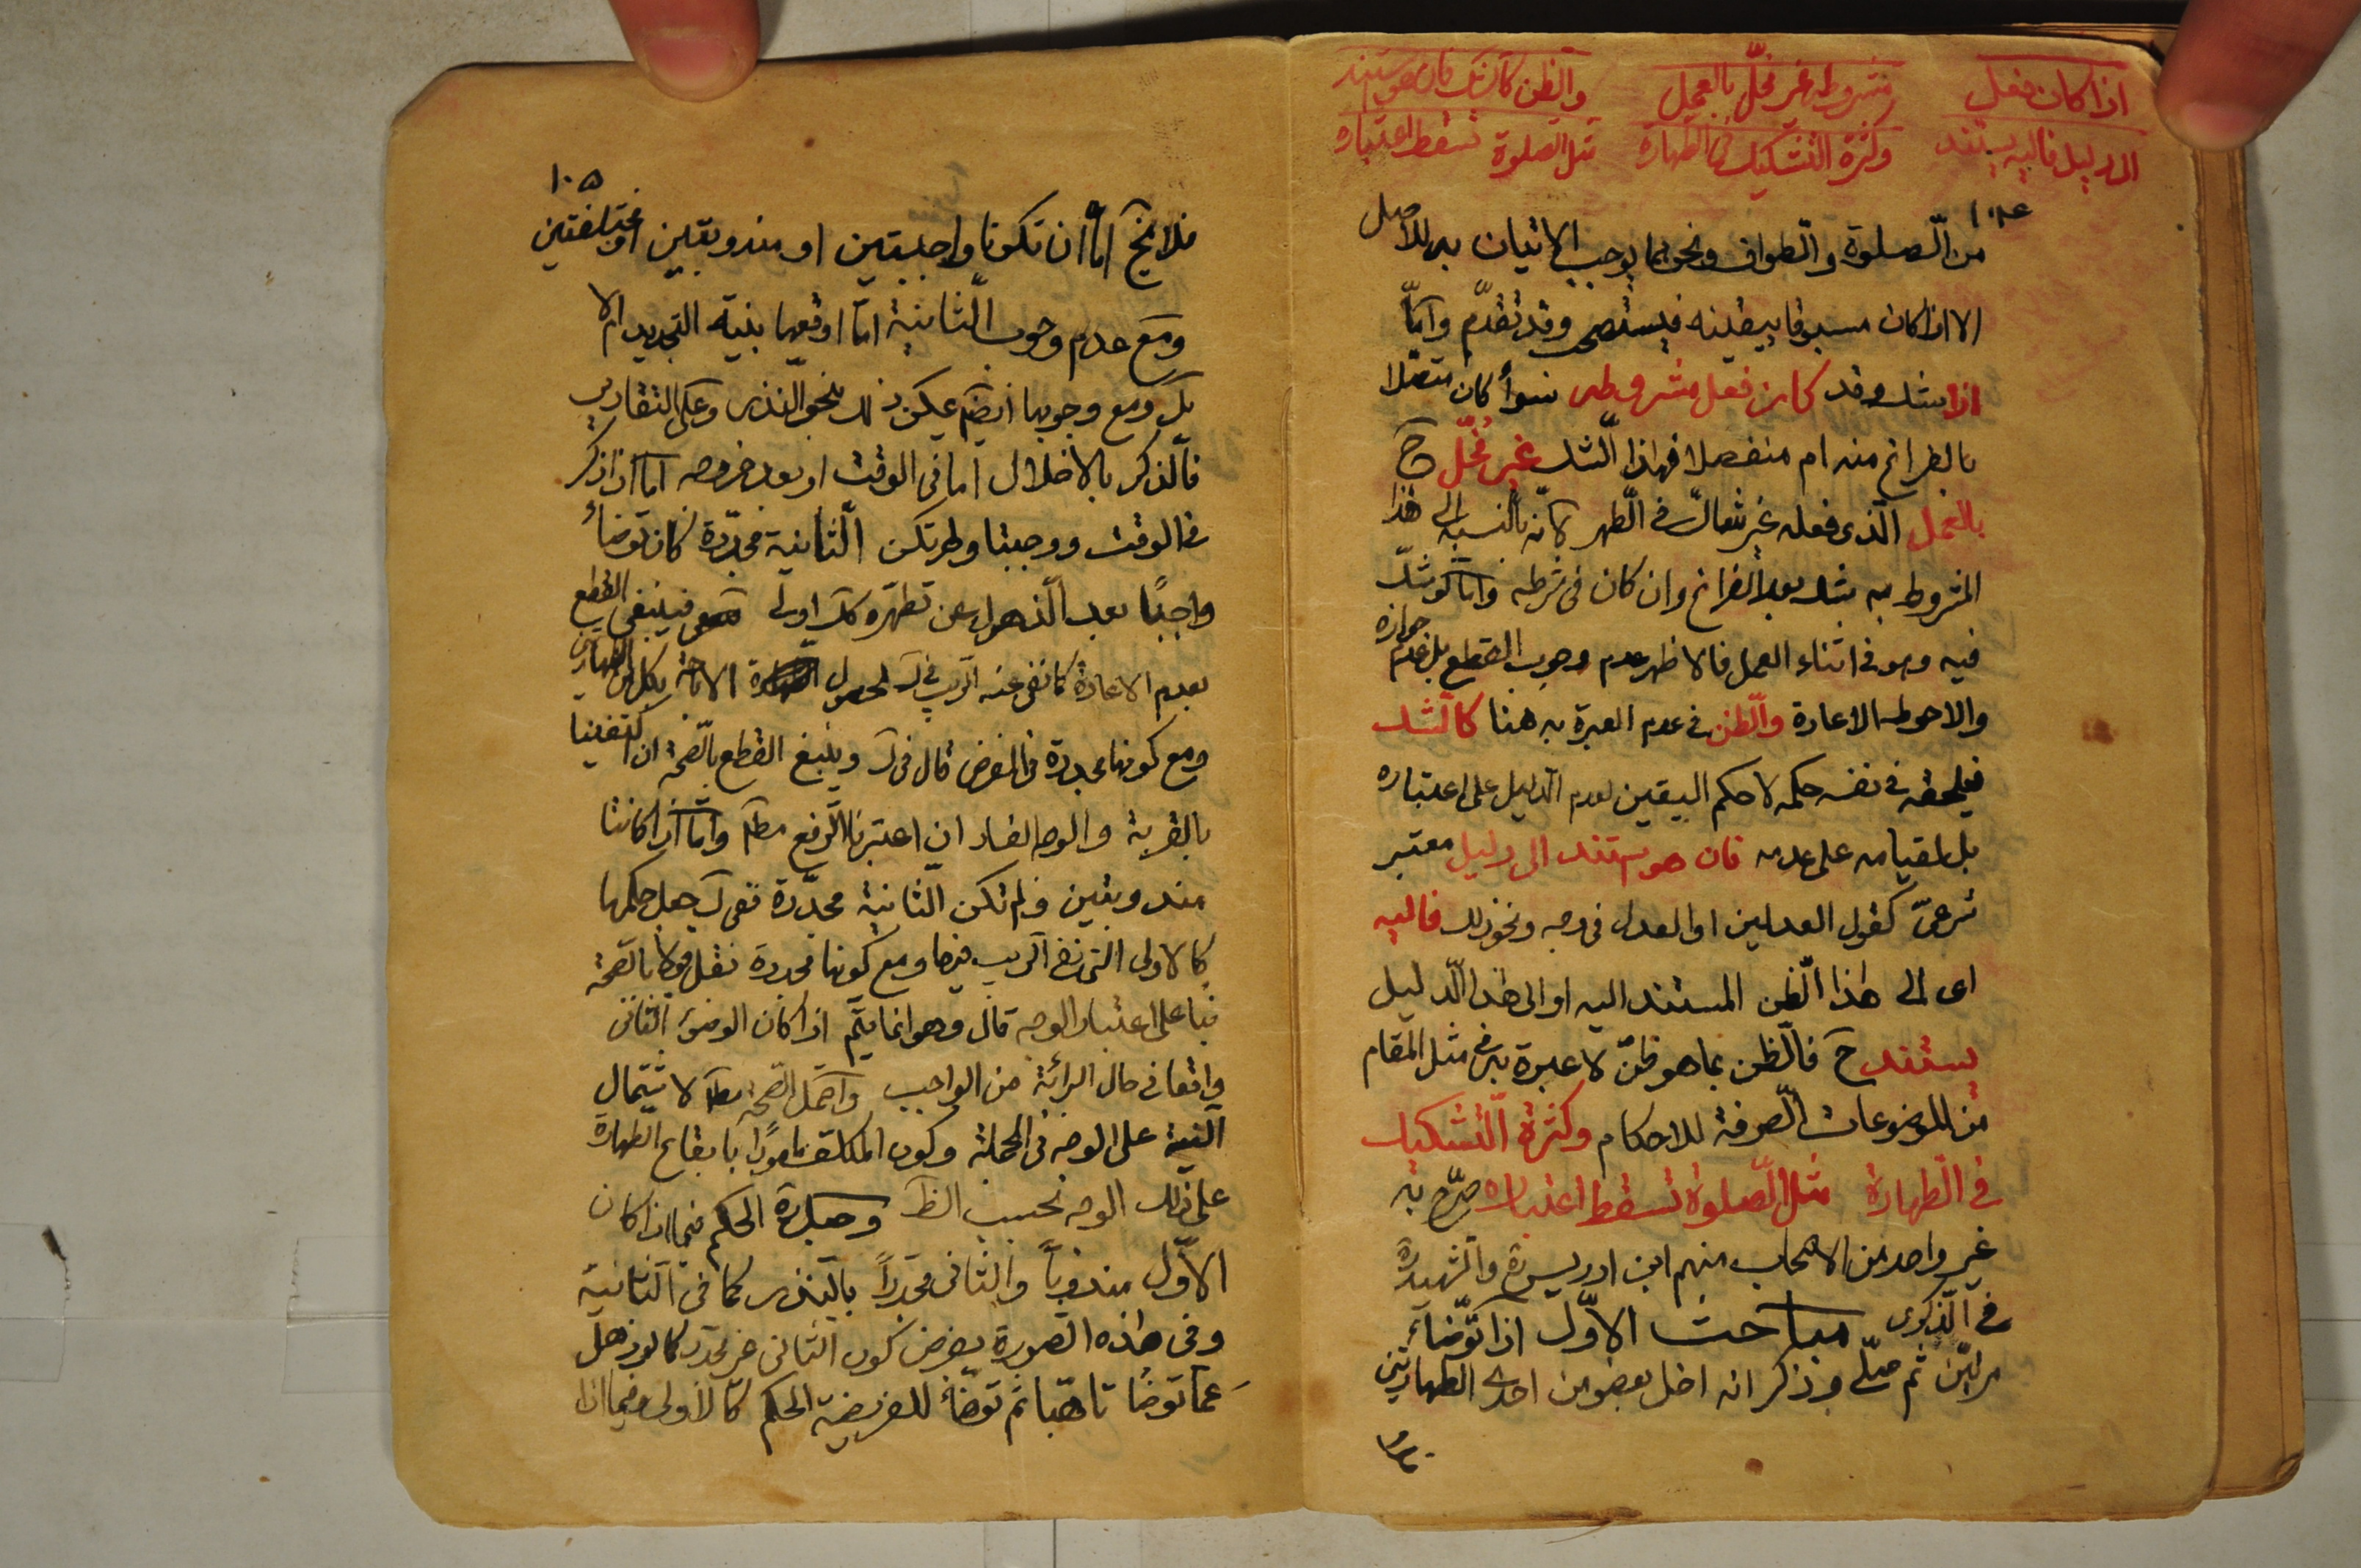 اذا كان فعل مشروطه غير مخلّ بالعمل والظن كالشك فان هو استند
الى دليل فاليه يستند وكثرة التشكيك فى الطهارة مثل الصلوة تسقط اعتباره
١٠٤
من الصلوة والطواف ونحوهما يوجب الاتيان به للاصل
الا اذا كان مسبوقا بيقينه فيستصحب وقد تقدّم وامّا
اذا شك وقد كان فعل مشروطه سواء كان متصلا
بالفراغ منه ام منفصلا فهذا الشك غير مُخلّ ح
بالعمل الّذى فعله غير شاكّ فى الطهر لانّه بالنسبة الى هذا
المشروط به شك بعد الفراغ وان كان فى شرطه وامّا لو شكّ
فيه وهو فى اثناء العمل فالاظهر عدم وجوب القطع بل عدم جوازه
والاحوط الاعادة والظن فى عدم العبرة به هنا كالشك
فيلحقه فى نفسه حكمه لا حكم اليقين لعدم الدليل على اعتباره
بل لقيامه على عدمه فان هو استند الى دليل معتبر
شرعىّ كقول العدلين او العدل فى وجه ونحو ذلك فاليه
اى الى هذا الظن المستند اليه او الى هذا الدليل
يستند ح فالظن بما هو ظنّ لا عبرة به فى مثل المقام
من الموضوعات الصرفة للاحكام وكثرة التشكيك
فى الطهارة مثل الصلوة تسقط اعتباره صرّح به
غير واحد من الاصحاب منهم ابن ادريس ره والشهيد ره
فى الذكرى مباحث الاوّل اذا توضّاء
مرتين ثم صلّى وذكر انه اخل بعضو من احدى الطهارتين
١٠٥
فلا يخ امّا ان تكونا واجبتين او مندوبتين او مختلفتين
ومع عدم وجوب الثانية امّا اوقعها بنية التجديد ام لا
بل ومع وجوبها ايضا يمكن ذلك بنحو النذر وعلى التقادير
فالذكر بالاخلال اما فى الوقت او بعد خروجه اما اذا ذكر
فى الوقت ووجبتا ولم تكن الثانية مجدّدة كان توضاء
واجبًا بعد الذهول عن تطهّره كك اولى فينبغى القطع
بعدم الاعادة كما نفى عنه الريب فى ك لحصول الاباحة بكل من الطهارتين
ومع كونها مجددة فالفرض قال فى ك وينبغ القطع بالصحة ان اكتفينا
بالقربة والوجه الفساد ان اعتبرنا الرفع مط وامّا اذا كانتا
مندوبتين ولم تكن الثانية مجدّدة ففى ك جعل حكمها
كالاولى التى نفى الريب فيها ومع كونها مجددة نقل قولا بالصحة
بناء على اعتبار الوجه قال وهو انما يتمّ اذا كان الوضوء الثانى
واقعا فى حال البرائة من الواجب واحتمل الصحة مط لاشتمال
النية على الوجه فى الجملة وكون المكلف مامورًا بايقاع الطهارة
على ذلك الوجه بحسب الظ وكذا الحكم فيما اذا كان
الاوّل مندوباً والثانى مجدداً بالنذر كما فى الثانية
وفى هذه الصورة يفرض كون الثانى غير مجدد كما لو ذهل
عمّا توضا تاهّبا ثم توضّاء للفريضة الحكم كالاولى فيما اذا